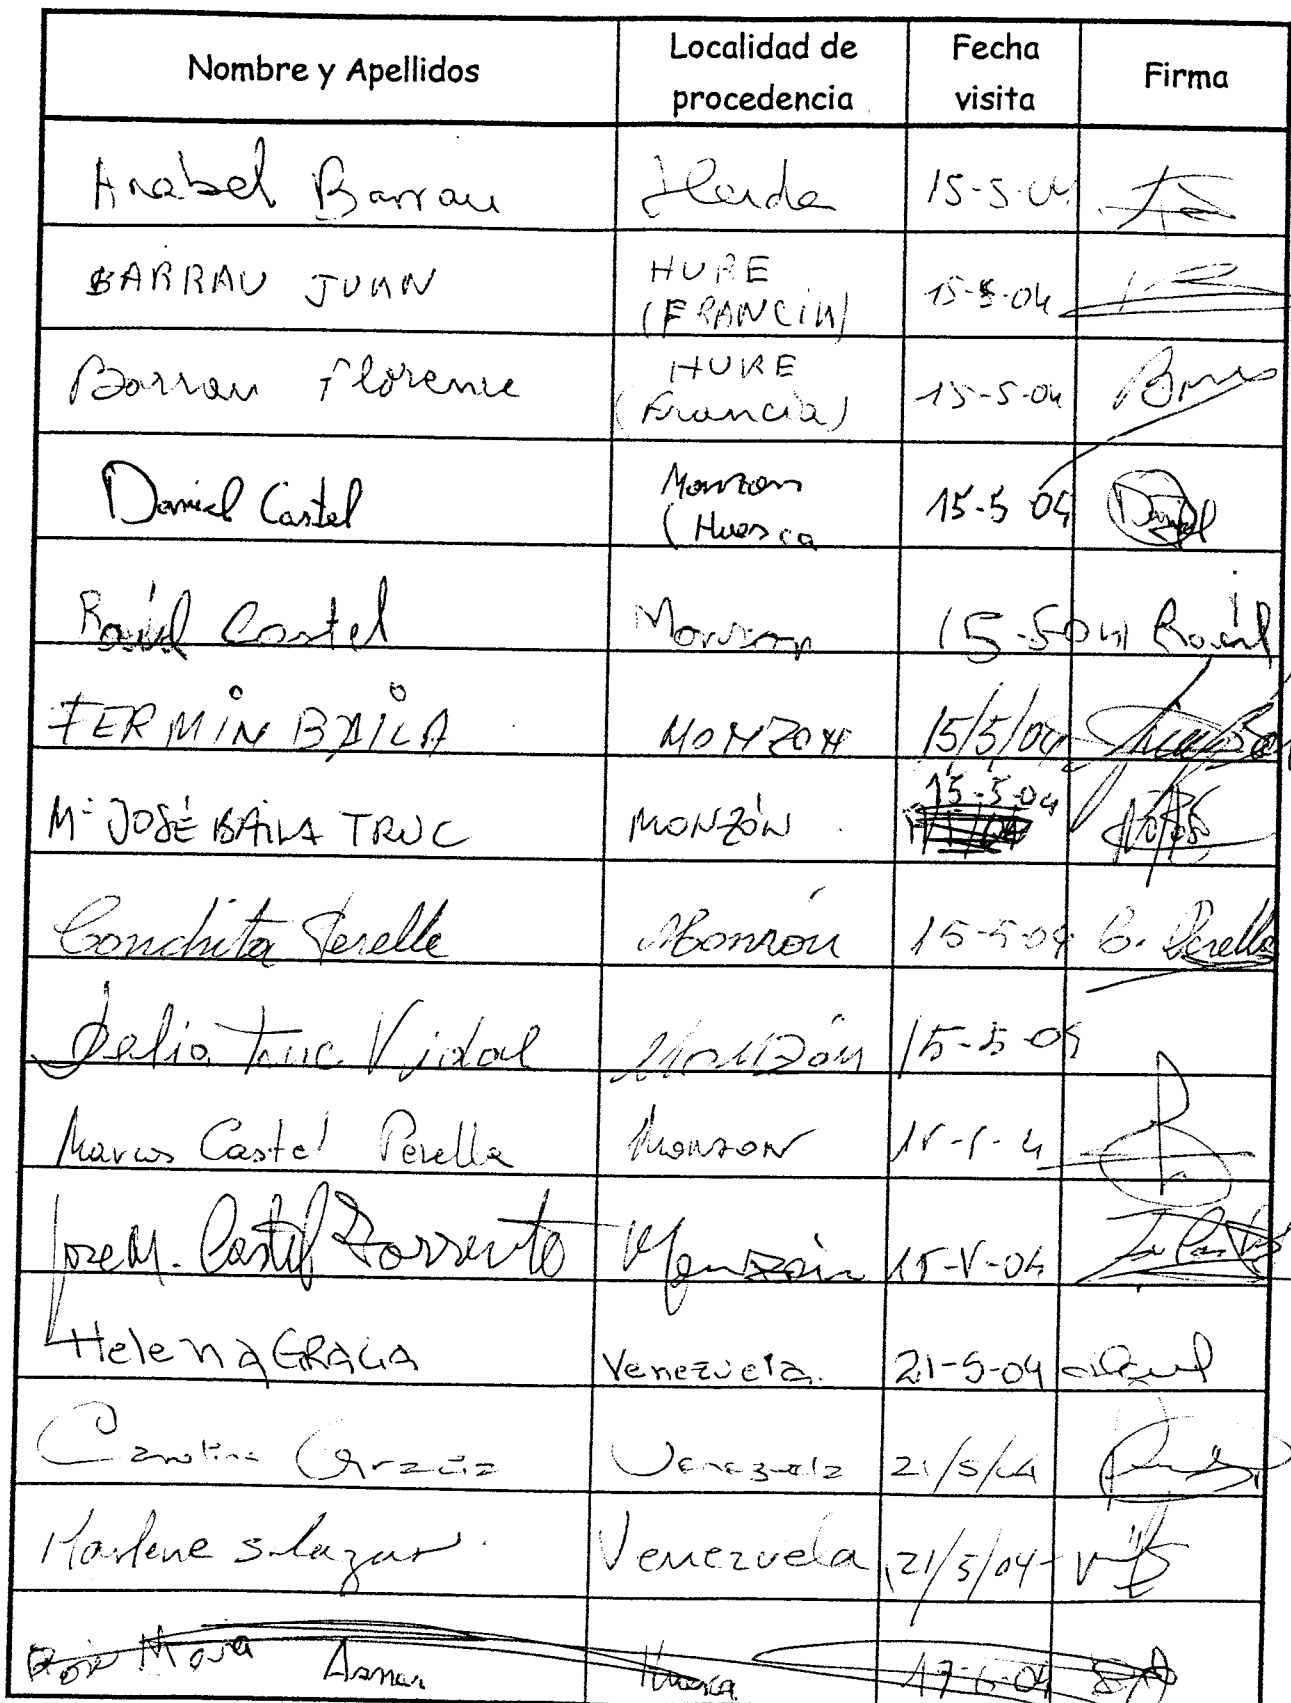 Nombre y Apellidos
Localidad de
procedencia
Fecha
visita
Firma
Anabel Barrau
Lleida
15-5-04
BARRAU JUAN
HURE
(FRANCIA)
15-5-04
Barrau Florence
HURE
(Francia)
15-5-04
Daniel Castel
Monzon
(Huesca
15-5 04
Daniel
Raúl Castel
Monzon
15-504
Raúl
FERMIN BAILA
MONZON
15/5/04
Mª JOSÉ BAILA TRUC
MONZÓN
15-5-04
Conchita Perella
Monzón
15-5-04
C. Perella
Delia Truc Vidal
Monzón
15-5-04
Marcos Castel Perella
Monzon
15-5-4
Jose M. Castel Torrente
Monzón
15-V-04
Helena GRACIA
Venezuela.
21-5-04
Carolina Gracia
Venezuela
21/5/04
Marlene Salazar
Venezuela
21/5/04
Aznar
Huesca
17-6-04